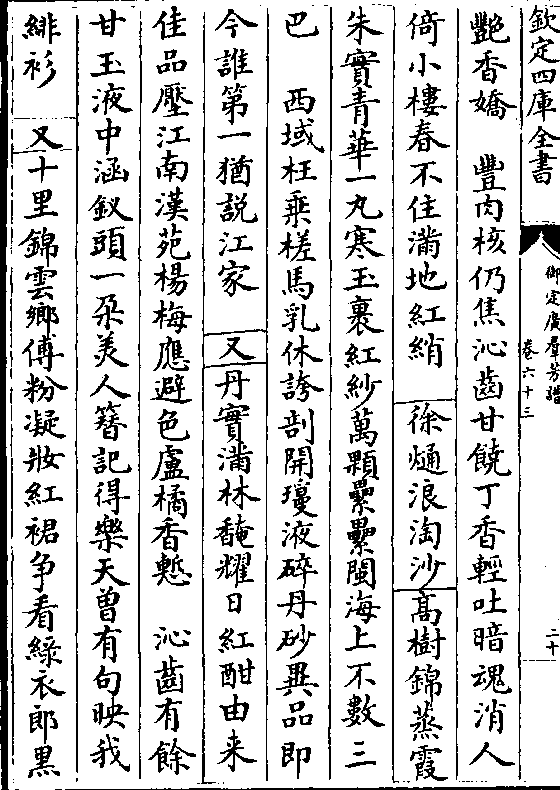 欽定四庫全書
御定廣羣芳譜
卷六十三
二十
艷香嬌　豐肉核仍焦沁齒甘饒丁香輕吐暗魂消人
倚小樓春不住滿地紅綃　徐熥浪淘沙　高樹錦蒸霞
朱實青華一丸寒玉裹紅紗萬顆纍纍閩海上不數三
巴　西域枉乗槎馬乳休誇剖開瓊液碎丹砂異品即
今誰第一猶説江家　又丹實滿林馣耀日紅酣由来
佳品壓江南漢苑楊梅應避色盧橘香慙　沁齒有餘
甘玉液中涵釵頭一朶美人簪記得樂天曽有句映我
緋衫　又十里錦雲鄉傅粉凝妝紅裙争看綠衣郎黒